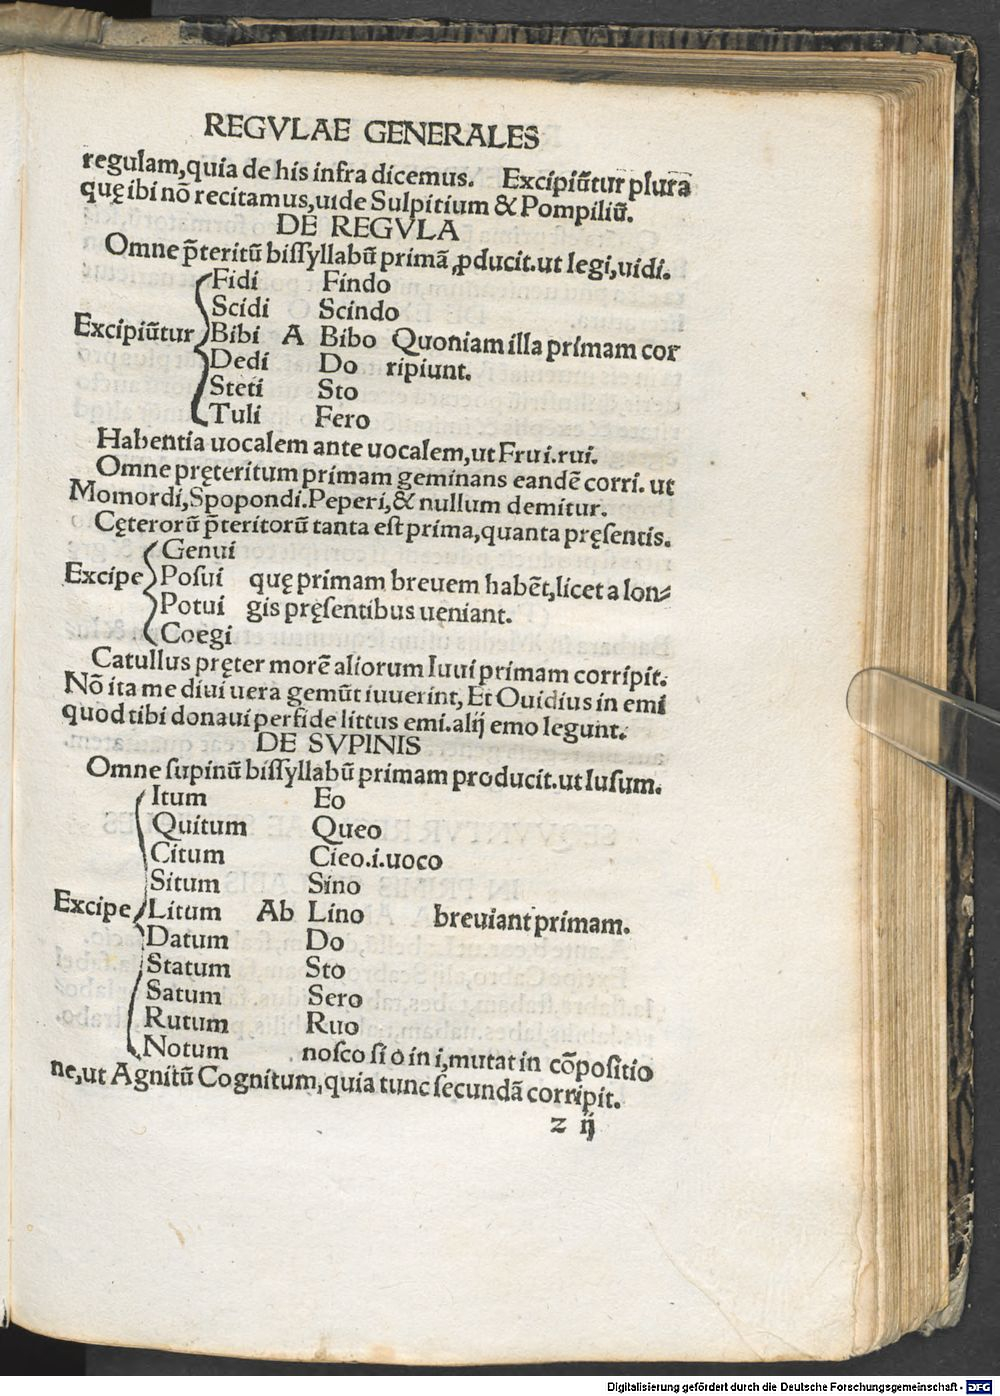 REGVLAE GENERALES
regulam,quia de his infra dicemus. Excipiũtur plura
quę ibi nõ recitamus,uide Sulpitium & Pompiliũ.
DE REGVLA
Omne p̃teritũ biſſyllabũ primã ꝓducit.ut legi,uidi.
Fidi Findo
Scidi Scindo
Excipiũtur Bibi A Bibo Quoniam illa primam cor
Dedi Do ripiunt.
Steti Sto
Tuli Fero
Habentia uocalem ante uocalem,ut Frui.rui.
Omne pręteritum primam geminans eandẽ corri. ut
Momordi,Spopondi.Peperi,& nullum demitur.
Cęterorũ p̃teritorũ tanta eſt prima,quanta pręſentis.
Genui
Excipe Poſui quę primam breuem habẽt,licet a lon⸗
Potui gis pręſentibus ueniant.
Coegi
Catullus pręter morẽ aliorum Iuui primam corripit.
Nõ ita me diui uera gemũt iuuerint, Et Ouidius in emi
quod tibi donaui perfide littus emi.alij emo legunt.
DE SVPINIS
Omne ſupinũ biſſyllabũ primam producit.ut luſum.
Itum Eo
Quitum Queo
Citum Cieo.i.uoco
Situm Sino
Excipe Litum Ab Lino breuiant primam.
Datum Do
Statum Sto
Satum Sero
Rutum Ruo
Notum noſco ſi o in i,mutat in cõpoſitio
ne,ut Agnitũ Cognitum,quia tunc ſecundã corripit.
z ij
Digitalisierung gefördert durch die Deutsche Forschungsgemeinschaft - DFG